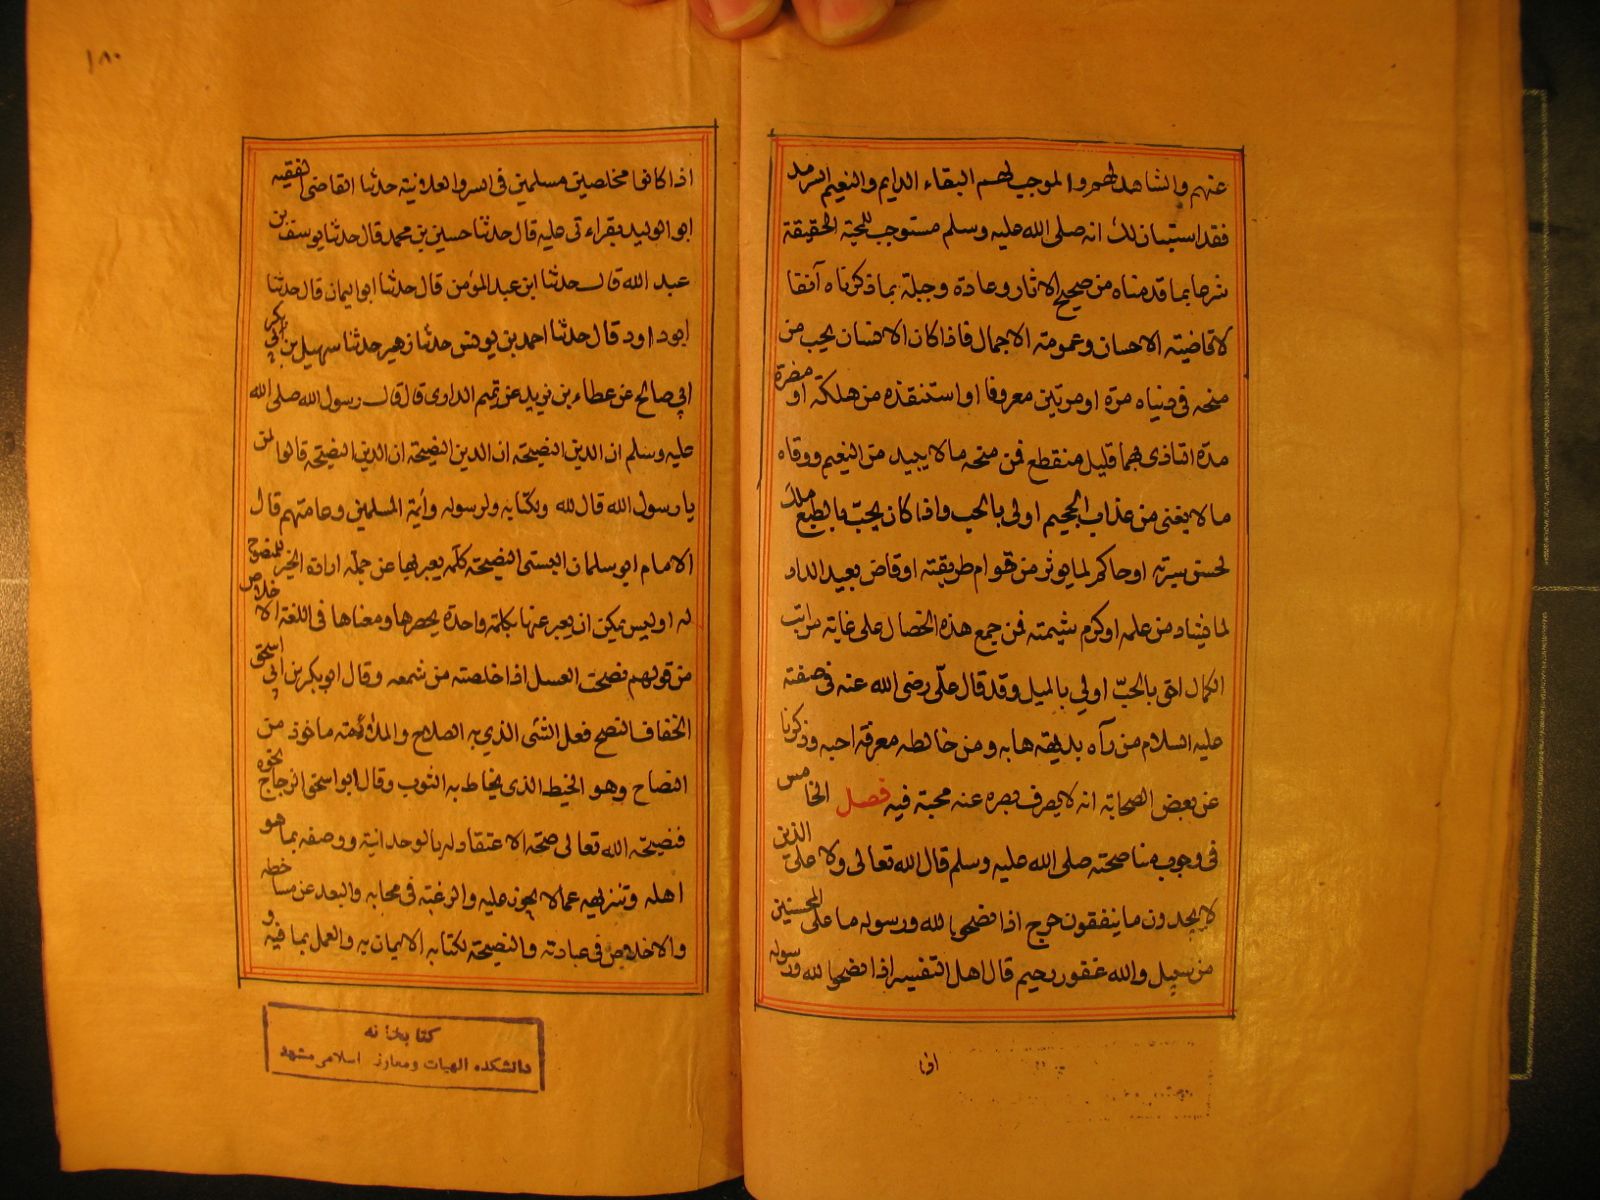 عنهم والشاهد لهم والموجب لهم البقاء الدايم والنعيم السرمد
فقد استبان لك انه صلى الله عليه وسلم مستوجب للمحبة الحقيقة
شرعا بما قدمناه من صحيح الاثار وعادة وجبلة بما ذكرناه آنفا
لافاضته الاحسان وعمومته الاجمال فاذا كان الانسان يحب من
منحه فى دنياه مرة او مرتين معروفا او استنقذه من هلكة او مضرة
مدة التاذى بهما قليل منقطع فمن منحه مالا يبيد من النعيم ووقاه
مالا يفنى من عذاب الجحيم اولى بالحب واذا كان يحب بالطبع ملك
لحسن سيرته او حاكم لما يوثر من قوام طريقته او قاض بعيد الدار
لما فيشاد من علمه او كرم شيمته فمن جمع هذه الخصال على غاية مراتب
الكمال احق بالحب اولي بالميل وقد قال على رضى الله عنه فى صفته
عليه السلام من رآه بديهة هابه ومن خالطه معرفة احبه وذكرنا
عن بعض الصحابة انه لا يصرف بصره عنه محبة فيه فصل الخامس
فى وجوب مناصحته صلى الله عليه وسلم قال الله تعالى ولا على الذين
لا يجدون ما ينفقون حرج اذا نصحوا لله ورسوله ما على المحسنين
من سبيل والله غفور رحيم قال اهل التفسير اذا نصحوا لله ورسوله
اذا
١٨٠
اذا كانوا مخلصين مسلمين فى السر والعلانية حدثنا القاضى الفقيه
ابو الوليد بقراءتى عليه قال حدثنا حسين بن محمد قال حدثنا يوسف بن
عبد الله قال حدثنا ابن عبد المؤمن قال حدثنا ابو اليمان قال حدثنا
ابو داود قال حدثنا احمد بن يونس حدثنا زهير حدثنا سهيل بن ابي بكر
ابي صالح عن عطاء بن يزيد عن تميم الدارى قال قال رسول الله صلى الله
عليه وسلم ان الدين النصيحة ان الدين النصيحة ان الدين النصيحة قالوا لمن
يا رسول الله قال لله ولكتابه ولرسوله وأئمة المسلمين وعامتهم قال
الامام ابو سلمان البستى النصيحة كلمة يعبر بها عن جملة ارادة الخير للمنصوح
له او ليس يمكن ان يعبر عنها بكلمة واحدة يحصرها ومعناها فى اللغة الاخلاص
من قولهم نصحت العسل اذا خلصته من شمعه وقال ابو بكر بن ابي اسحق
الخفاف النصح فعل الشئ الذي به الصلاح والملائمة ماخوذ من
النصاح وهو الخيط الذى يخاط به الثوب وقال ابو اسحق الزجاج نحوه
فنصيحة الله تعالى صحة الاعتقاد له بالوحدانية ووصفه بما هو
اهله وتنزيهه عما لا يجوز عليه والرغبة فى محابه والبعد عن مساخطه
والاخلاص فى عبادته والنصيحة لكتابه الايمان به والعمل بما فيه و
كتابخانه
دانشكده الهيات ومعارف اسلامى مشهد